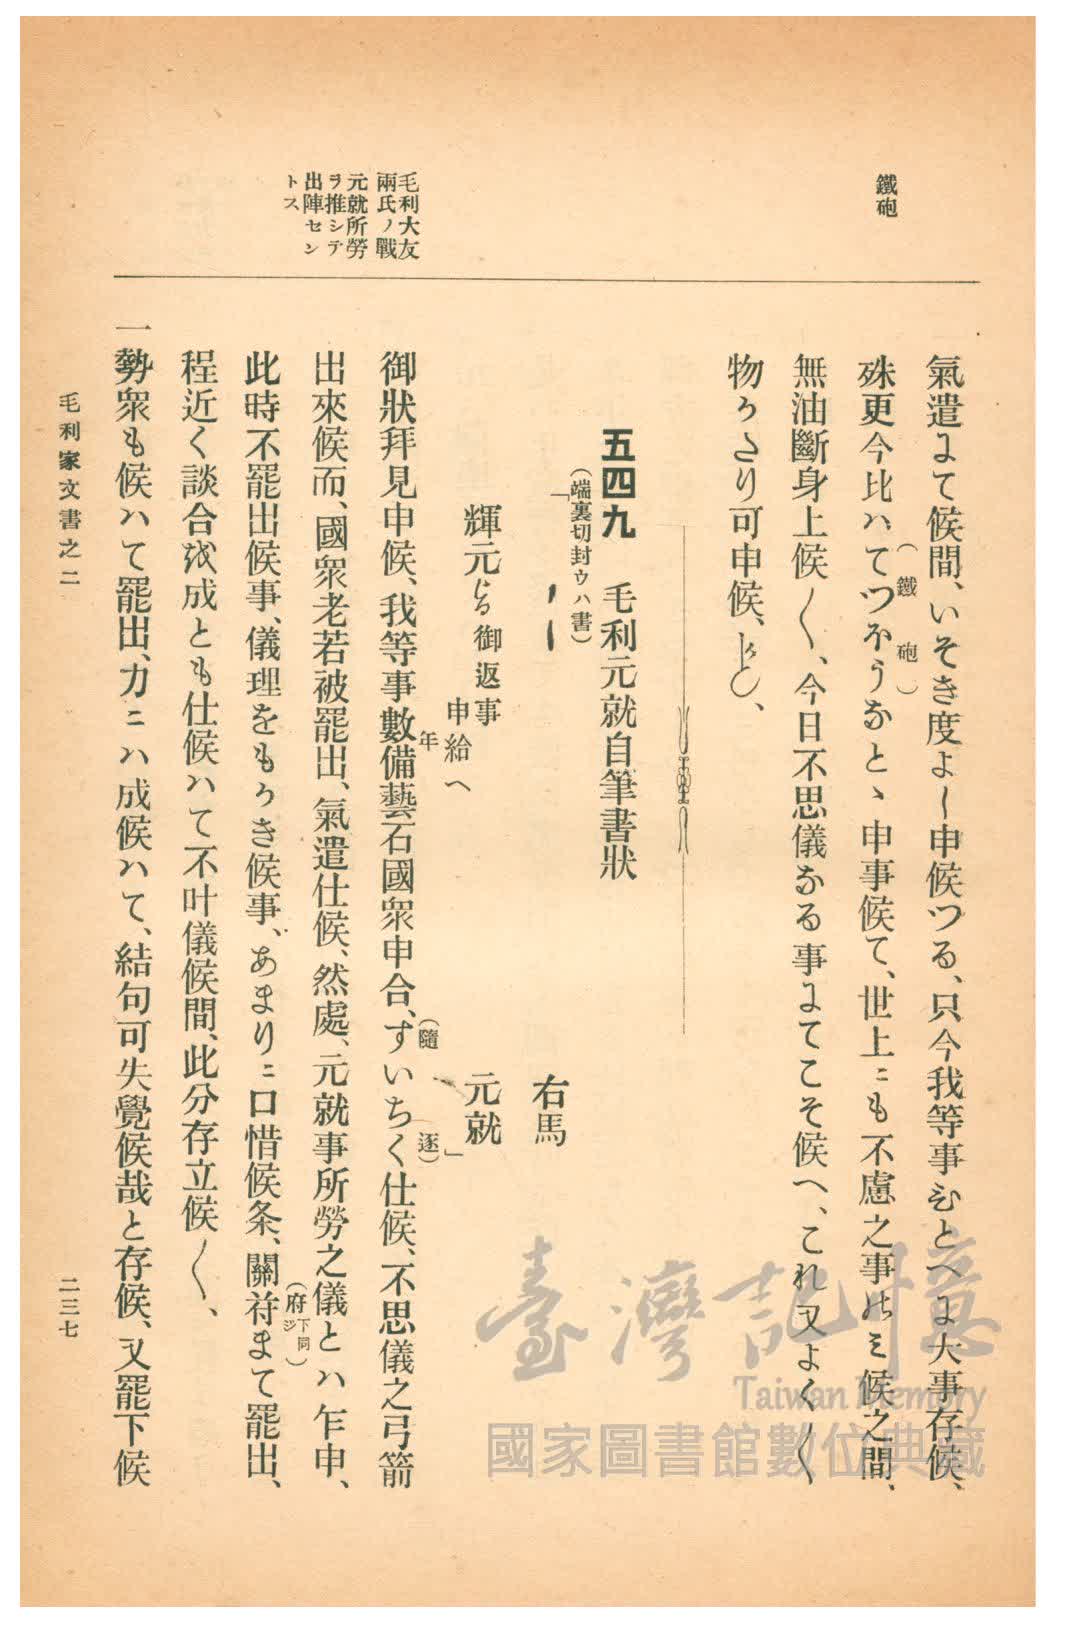 鐵砲
氣遣ニて候間、いそき度よし申候つる、只今我等事ひとへニ大事存候、
殊更今比ハてつほうなとゝ申事候て、世上ニも不慮之事のミ候之間、
（鐵砲）
無油斷身上候〳〵、今日不思儀なる事ニてこそ候へ、これ又よく〳〵
物かたり可申候、かしく、
五四九　毛利元就自筆書狀
（端裏切封ウハ書）
「
右馬
輝元より御返事申給へ
元就」
毛利大友
兩氏ノ戰
元就所勞
ヲ推シテ
出陣セン
トス
御狀拜見申候、我等事數備藝石國衆申合、すいちく仕候、不思儀之弓箭
年
（隨逐）
出來候而、國衆老若被罷出、氣遣仕候、然處、元就事所勞之儀とハ乍申、
此時不罷出候事、儀理をもかき候事、あまりニ口惜候条、關苻まて罷出、
（府下同シ）
程近く談合を成とも仕候ハて不叶儀候間、此分存立候〳〵、
一勢衆も候ハて罷出、力ニハ成候ハて、結句可失覺候哉と存候、又罷下候
毛利家文書之二
二三七
臺灣記憶
Taiwan Memory
國家圖書館數位典藏